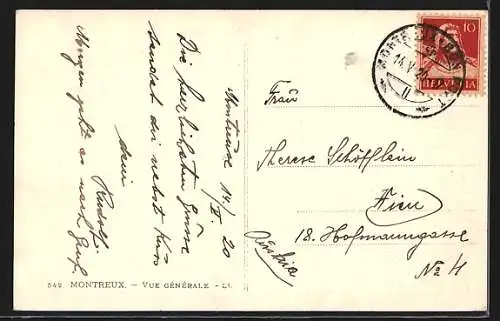 Montreux 14/V. 20
Die herzlichsten Grüsse
sendet dir nebst Kuss
dein
Rudolf.
Morgen geht es nach Genf.
Frau
Therese Schöfflein
Wien
18. Hofmanngasse
No 4
Austria
10
HELVETIA
14.V.20
549 MONTREUX. – VUE GÉNÉRALE – LL.